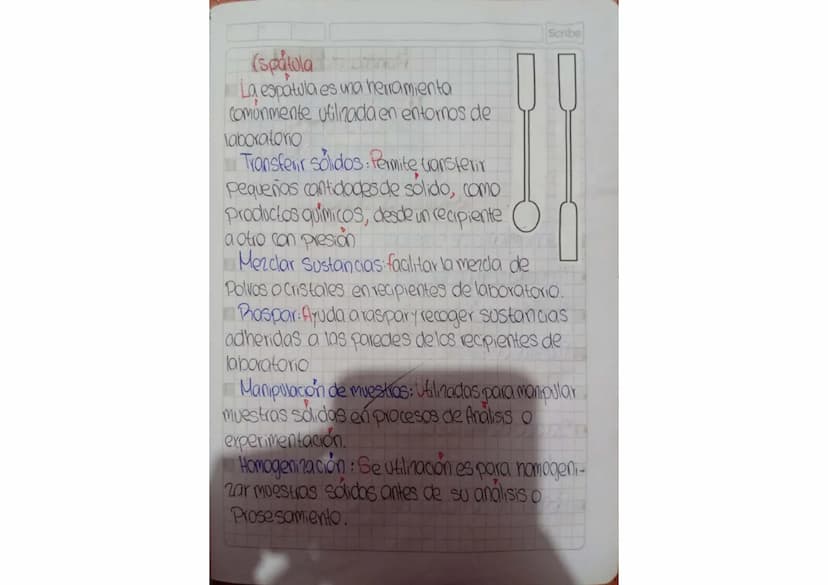 Scribe
Espátula
La espátula es una herramienta
comúnmente utilizada en entornos de
laboratorio
Transferir sólidos: Permite transferir
pequeñas cantidades de sólido, como
productos químicos, desde un recipiente
a otro con presión
Mezclar sustancias: facilitar la mezcla de
Polvos o cristales en recipientes de laboratorio.
Raspar: Ayuda a raspar y recoger sustancias
adheridas a las paredes de los recipientes de
laboratorio
Manipulación de muestras: Utilizadas para manipular
muestras sólidas en procesos de Análisis o
experimentación.
Homogenización: Se utilización es para homogeni-
zar muestras sólidas antes de su análisis o
Prosesamiento.